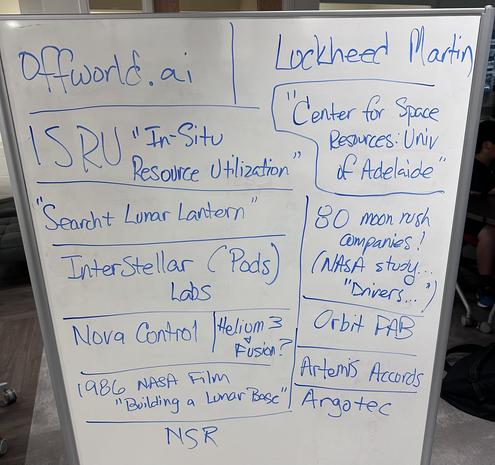 Offworld.ai
Lockheed Martin
ISRU "In-Situ
Resource Utilization"
"Center for Space
Resources: Univ
of Adelaide"
"Searcht Lunar Lantern"
InterStellar (Pods)
Labs
80 moon rush
companies!
(NASA study...
"Drivers...")
Nova Control
Helium 3
Fusion?
Orbit FAB
1986 NASA Film
"Building a Lunar Base"
Artemis Accords
NSR
Argotec